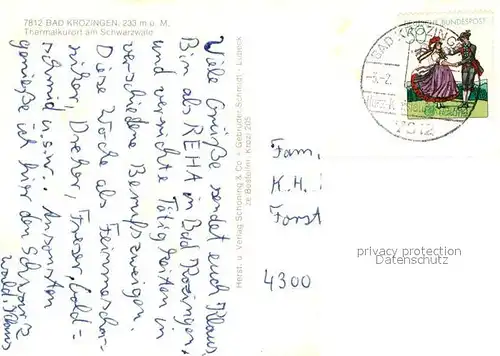 7812 BAD KROZINGEN, 233 m ü. M.
Thermalkurort am Schwarzwald
Viele Grüße sendet euch Klaus,
Bin als REHA in Bad Krozingen
und verrichte Tätigkeiten in
verschiedene Berufszweigen.
Diese Woche als Feinmecha-
niker, Dreher, Fräser, Gold=
schmid u.s.w.. Ansonsten
genieße ich hier den Schwarz
wald. Klaus
Herst. u. Verlag Schöning & Co + Gebrüder Schmidt, Lübeck
DEUTSCHE BUNDESPOST
BAD KROZINGEN
7812
Fam.
K.H.
Forst
4300
privacy protection
Datenschutz